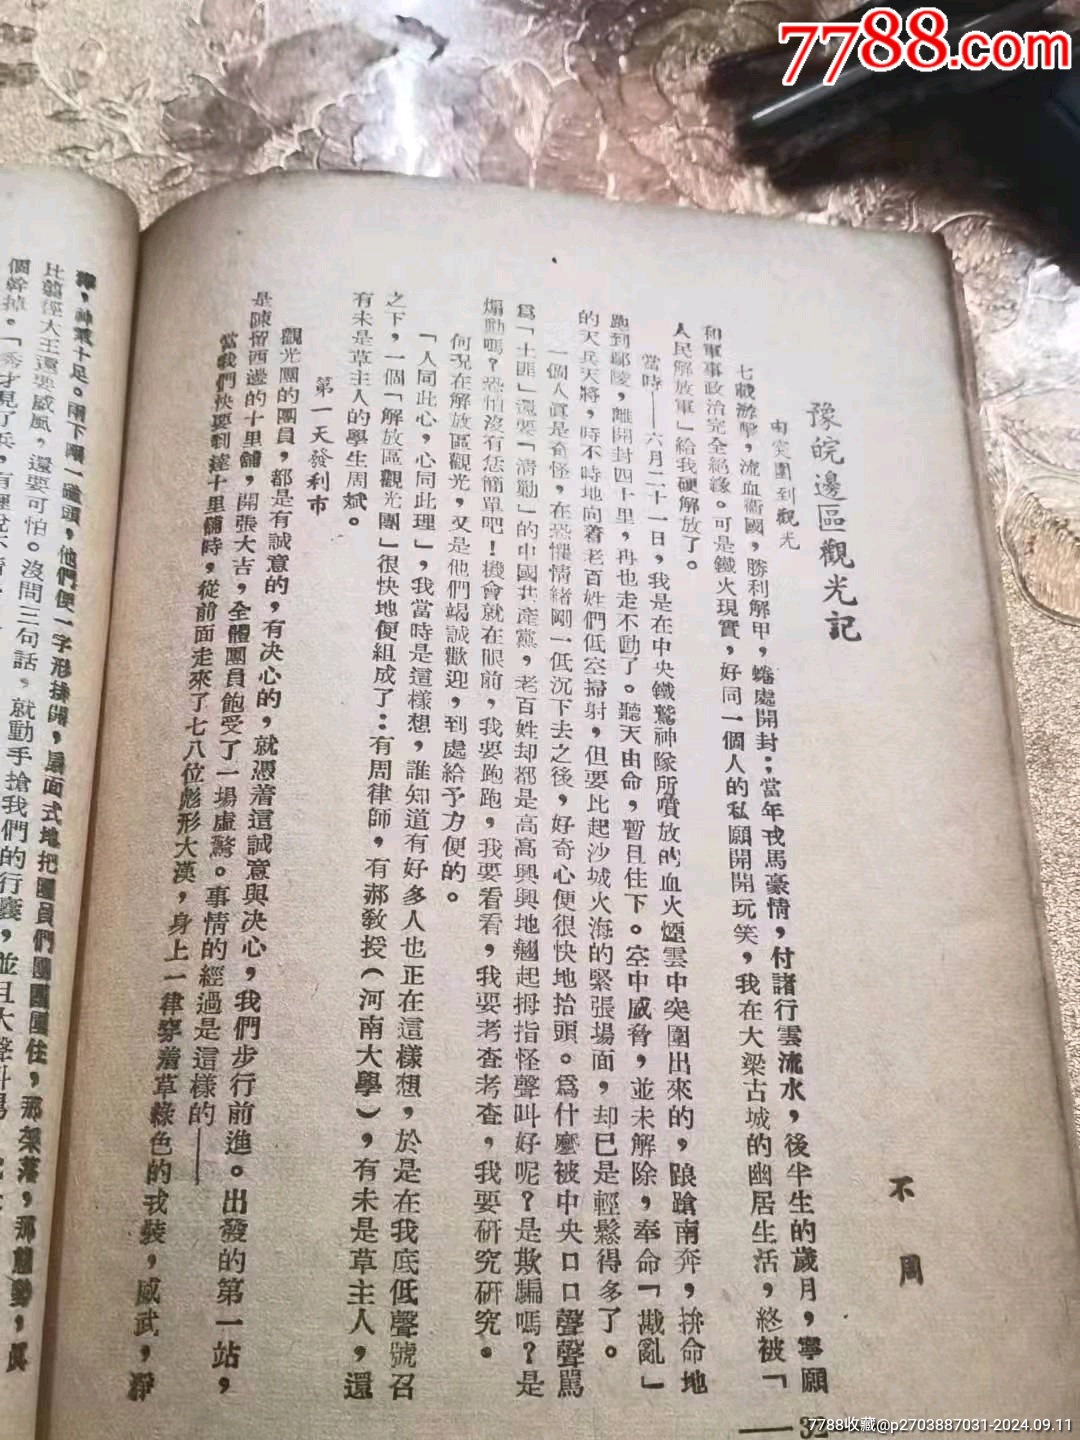 7788.com
豫皖邊區觀光記
不周
由突圍到觀光
七載游擊，流血衞國，勝利解甲，蜷處開封；當年戎馬豪情，付諸行雲流水，後半生的歲月，寧願
和軍事政治完全絕緣。可是鐵火現實，好同一個人的私願開開玩笑，我在大梁古城的幽居生活，終被「
人民解放軍」給我硬解放了。
當時——六月二十一日，我是在中央鐵鷲神隊所噴放的血火煙雲中突圍出來的，踉蹌南奔，拚命地
跑到鄢陵，離開封四十里，再也走不動了。聽天由命，暫且住下。空中威脅，並未解除，奉命「戡亂」
的天兵天將，時不時地向著老百姓們低空掃射，但要比起沙城火海的緊張場面，却已是輕鬆得多了。
一個人眞是奇怪，在恐懼情緒剛一低沉下去之後，好奇心便很快地抬頭。爲什麼被中央口口聲聲罵
爲「土匪」還要「清勦」的中國共產黨，老百姓却都是高高興興地翹起拇指怪聲叫好呢？是欺騙嗎？是
煽動嗎？恐怕沒有恁簡單吧！機會就在眼前，我要跑跑，我要看看，我要考查考查，我要研究研究。
何況在解放區觀光，又是他們竭誠歡迎，到處給予方便的。
「人同此心，心同此理」，我當時是這樣想，誰知道有好多人也正在這樣想，於是在我底低聲號召
之下，一個「解放區觀光團」很快地便組成了：有周律師，有郝敎授（河南大學），有未是草主人，還
有未是草主人的學生周斌。
第一天發利市
觀光團的團員，都是有誠意的，有决心的，就憑着這誠意與决心，我們步行前進。出發的第一站，
是陳留西邊的十里舖，開張大吉，全體團員飽受了一場虛驚。事情的經過是這樣的——
當我們快要到達十里舖時，從前面走來了七八位彪形大漢，身上一律穿着草綠色的戎裝，威武，淨
獰，神氣十足。兩下剛一碰頭，他們便一字形排開，扇面式地把團員們團團圍住，那架落，那態勢，眞
比翦徑大王還要威風，還要可怕。沒問三句話，就動手搶我們的行囊，並且大聲
個幹掉。「秀才見了兵，有理說不
— 32
7788收藏@p2703887031-2024.09.11